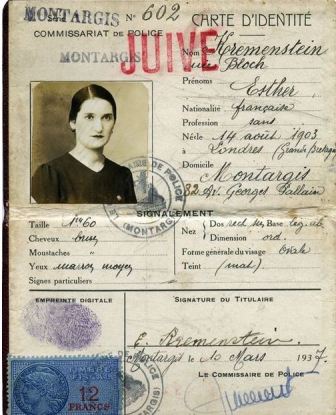 MONTARGIS N° 602 CARTE D'IDENTITÉ
COMMISSARIAT DE POLICE
MONTARGIS
JUIVE
Nom Kremenstein
née Bloch
Prénoms
Esther
Nationalité française
Profession sans
Né le 14 août 1903
à Londres (Grande Bretagne)
Domicile
Montargis
32 Av. Georges Pallain
SIGNALEMENT
Taille 1m60
Cheveux
Moustaches "
Yeux marron moyen
Signes particuliers
Nez
Dos rect Base
Dimension ord.
Forme générale du visage Ovale
Teint (mat)
EMPREINTE DIGITALE
SIGNATURE DU TITULAIRE
E. Kremenstein
Montargis le 10 Mars 1937
LE COMMISSAIRE DE POLICE
COMMISSAIRE DE POLICE
(MONTARGIS)
TIMBRE FISCAL
12
FRANCS